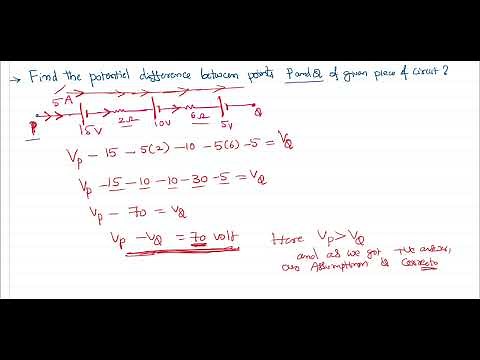 → Find the potential difference between points P and Q of given piece of circuit ?
5A
P 15V 2Ω 10V 6Ω 5V Q
Vp - 15 - 5(2) - 10 - 5(6) - 5 = VQ
Vp - 15 - 10 - 10 - 30 - 5 = VQ
Vp - 70 = VQ
Vp - VQ = 70 volt
Here Vp > VQ
and as we got +ve answer,
our Assumption is